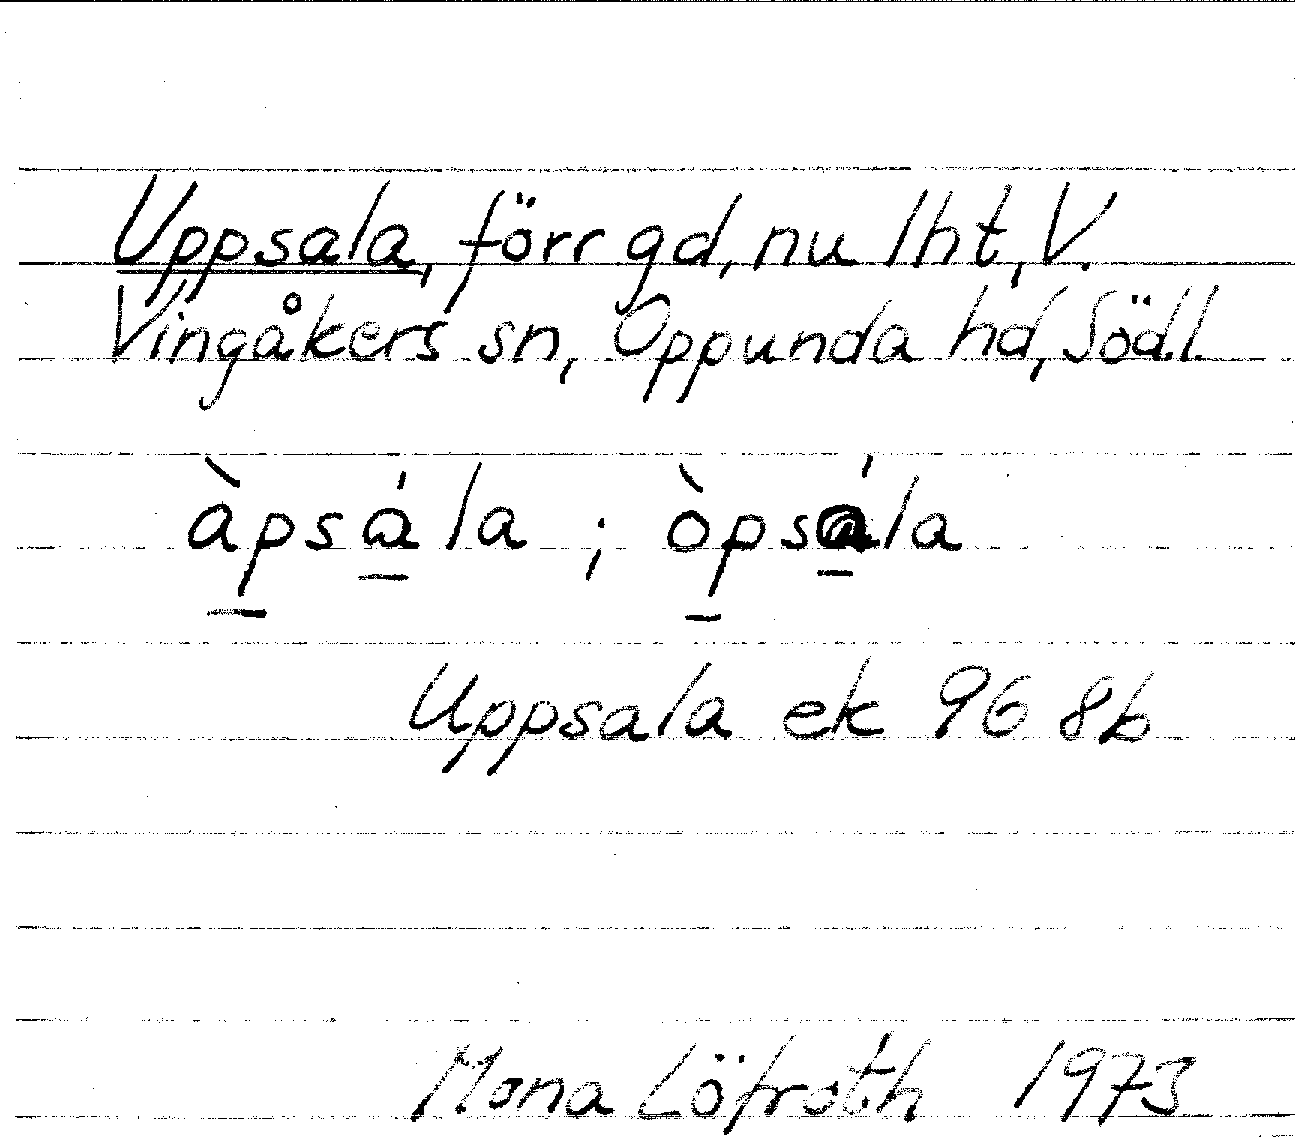 Uppsala, förr gd, nu lht, V.
Vingåkers sn, Oppunda hd, Södl.
àpsála ; òpsála
Uppsala ek 9G 8b
Mona Löfroth 1973